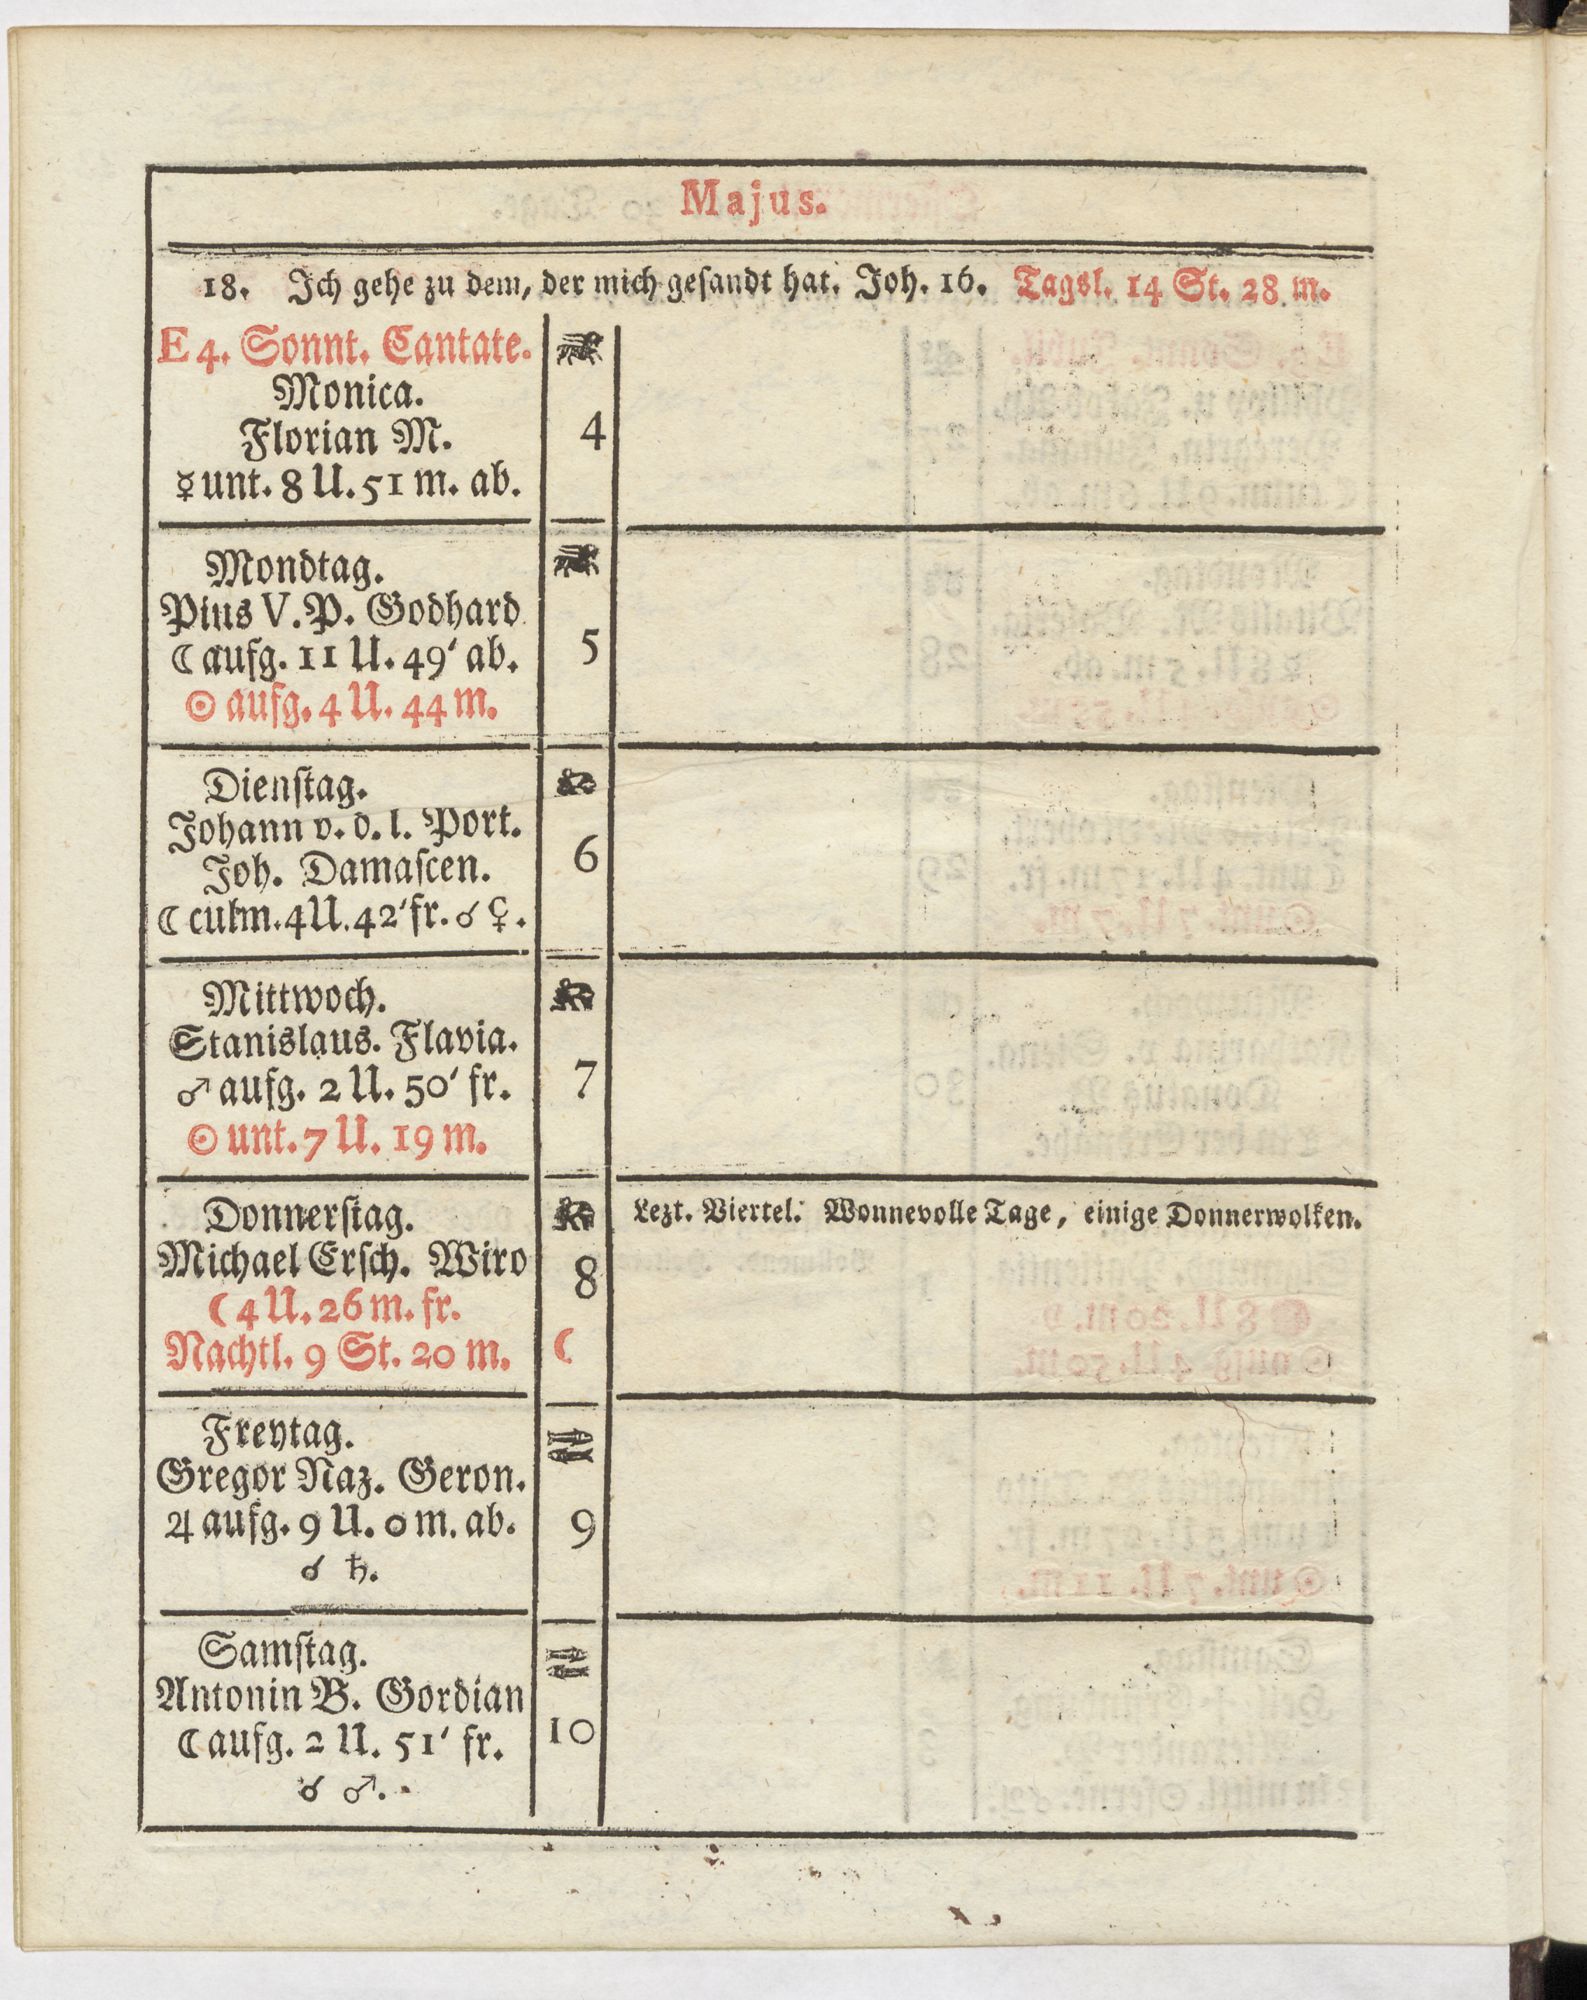 Majus.
18. Ich gehe zu dem, der mich gesandt hat. Joh. 16. Tagsl. 14 St. 28 m.
E 4. Sonnt. Cantate.
Monica.
Florian M.
4
☿ unt. 8 U. 51 m. ab.
Mondtag.
Pius V. P. Godhard
☾ aufg. 11 U. 49' ab.
5
☉ aufg. 4 U. 44 m.
Dienſtag.
Johann v. d. l. Port.
Joh. Damaſcen.
6
☾ culm. 4 U. 42' fr. ☌ ♀.
Mittwoch.
Stanislaus. Flavia.
♂ aufg. 2 U. 50' fr.
7
☉ unt. 7 U. 19 m.
Donnerſtag.
Lezt. Viertel. Wonnevolle Tage, einige Donnerwolken.
Michael Erſch. Wiro
8
☾ 4 U. 26 m. fr.
Nachtl. 9 St. 20 m.
☾
Freytag.
Gregor Naz. Geron.
♃ aufg. 9 U. 0 m. ab.
9
☌ ♄.
Samſtag.
Antonin B. Gordian
☾ aufg. 2 U. 51' fr.
10
☌ ♂.